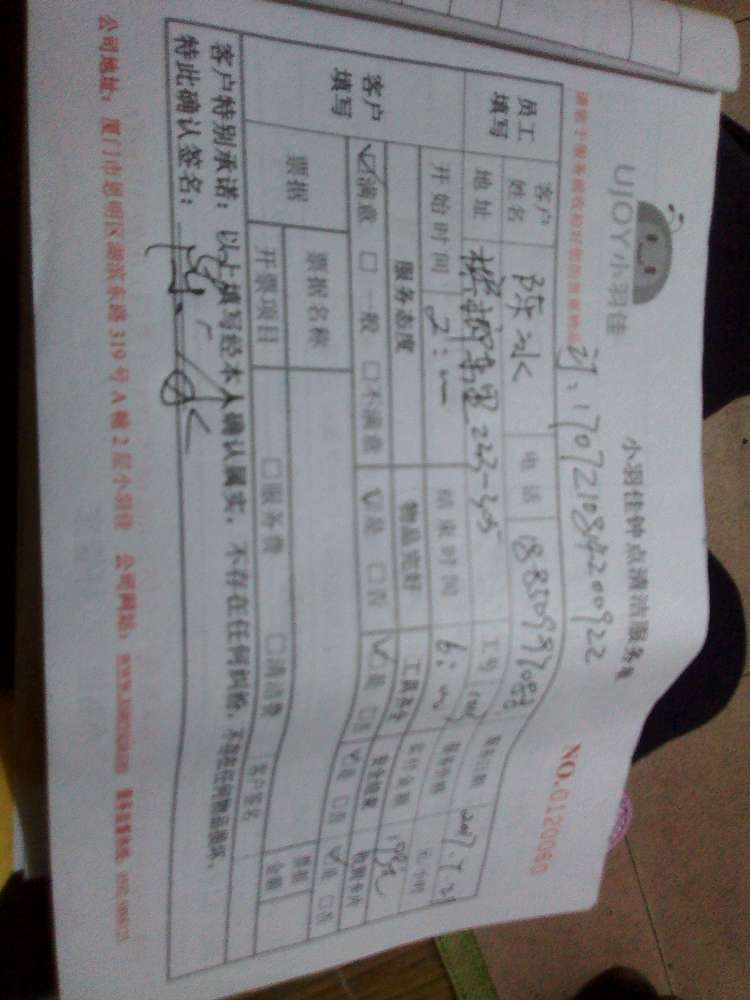 UJOY小羽佳
小羽佳钟点清洁服务
NO.0120060
订:170721084200922
员工填写 客户姓名 陈冰 电话 工号 服务日期
地址 223-305
开始时间 2: 结束时间 6: 实付金额 元/小时
客户填写 服务态度 物品完好 工具齐全 安全检查 检测室内
☑满意 □一般 □不满意 ☑是 □否 ☑是 □否 ☑是 □否 ☑是 □否
票据 票据名称 票据金额
开票项目 □服务费 □清洁费 客户签名
客户特别承诺:以上填写经本人确认属实,不存在任何纠纷,不存在任何物品损坏,
特此确认签名:陈冰
公司地址:厦门市思明区湖滨东路319号A幢2层小羽佳 公司网站: